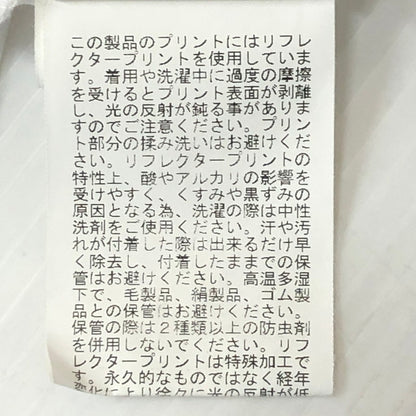 この製品のプリントにはリフレ
クタープリントを使用していま
す。着用や洗濯中に過度の摩擦
を受けるとプリント表面が剥離
し、光の反射が鈍る事がありま
すのでご注意ください。プリン
ト部分の揉み洗いはお避けくだ
さい。リフレクタープリントの
特性上、酸やアルカリの影響を
受けやすく、くすみや黒ずみの
原因となる為、洗濯の際は中性
洗剤をご使用ください。汗や汚
れが付着した際は出来るだけ早
く除去し、付着したままでの保
管はお避けください。高温多湿
下で、毛製品、絹製品、ゴム製
品との保管はお避けください。
保管の際は２種類以上の防虫剤
を併用しないでください。リフ
レクタープリントは特殊加工で
す。永久的なものではなく経年
変化により徐々に光の反射が低